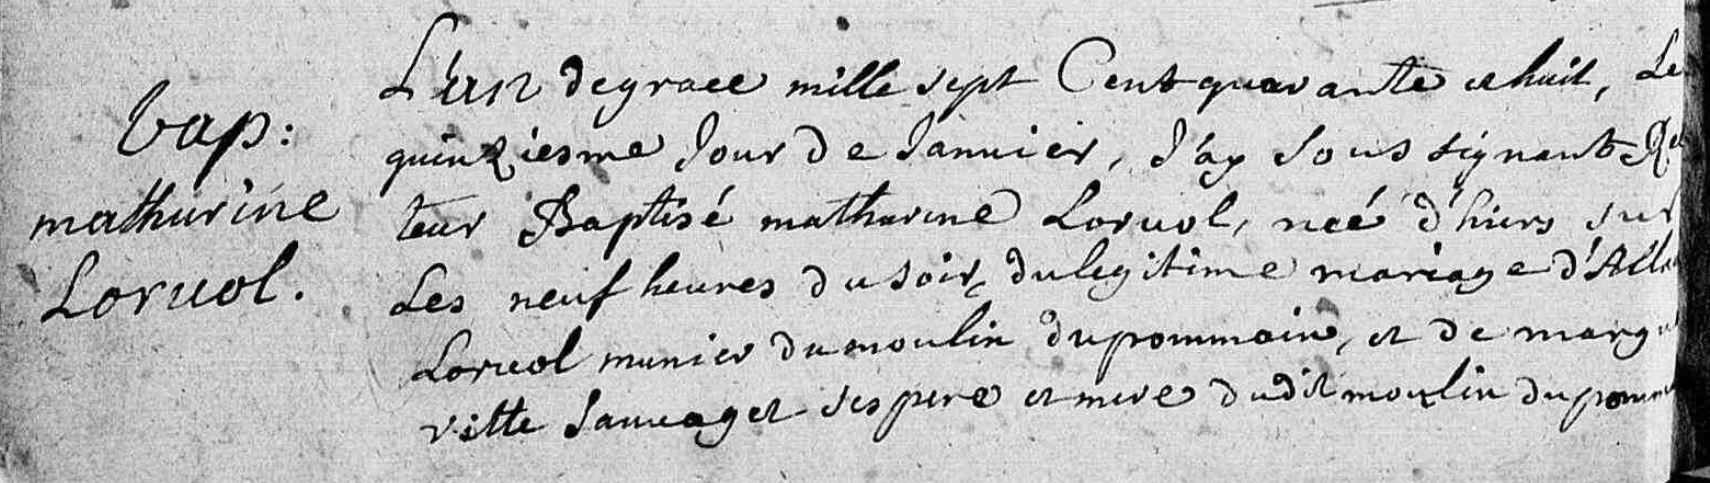 bap:
mathurine
Loruol.
L'an de grace mille sept Cent quarante et huit, Le
quinziesme Jour de Januier, J'ay Sous signant Rec
teur Baptisé mathurine Loruol, neé d'hiers sur
Les neuf heures du soir, du legitime mariage d'Alla
Loruol munier du moulin du pommain, et de margu
ritte Sauuaget ses pere et mere du dit moulin du pomm